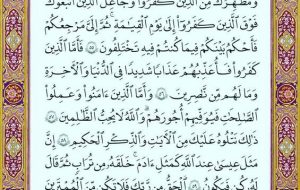 وَمُطَهِّرُكَ مِنَ الَّذِينَ كَفَرُوا وَجَاعِلُ الَّذِينَ اتَّبَعُوكَ
فَوْقَ الَّذِينَ كَفَرُوا إِلَىٰ يَوْمِ الْقِيَامَةِ ثُمَّ إِلَيَّ مَرْجِعُكُمْ
فَأَحْكُمُ بَيْنَكُمْ فِيمَا كُنتُمْ فِيهِ تَخْتَلِفُونَ ٥٥ فَأَمَّا الَّذِينَ
كَفَرُوا فَأُعَذِّبُهُمْ عَذَابًا شَدِيدًا فِي الدُّنْيَا وَالْآخِرَةِ
وَمَا لَهُم مِّن نَّاصِرِينَ ٥٦ وَأَمَّا الَّذِينَ ءَامَنُوا وَعَمِلُوا
الصَّالِحَاتِ فَيُوَفِّيهِمْ أُجُورَهُمْ وَاللَّهُ لَا يُحِبُّ الظَّالِمِينَ ٥٧
ذَٰلِكَ نَتْلُوهُ عَلَيْكَ مِنَ الْآيَاتِ وَالذِّكْرِ الْحَكِيمِ ٥٨ إِنَّ
مَثَلَ عِيسَىٰ عِندَ اللَّهِ كَمَثَلِ ءَادَمَ خَلَقَهُ مِن تُرَابٍ ثُمَّ قَالَ
لَهُ كُن فَيَكُونُ ٥٩ الْحَقُّ مِن رَّبِّكَ فَلَا تَكُن مِّنَ الْمُمْتَرِينَ